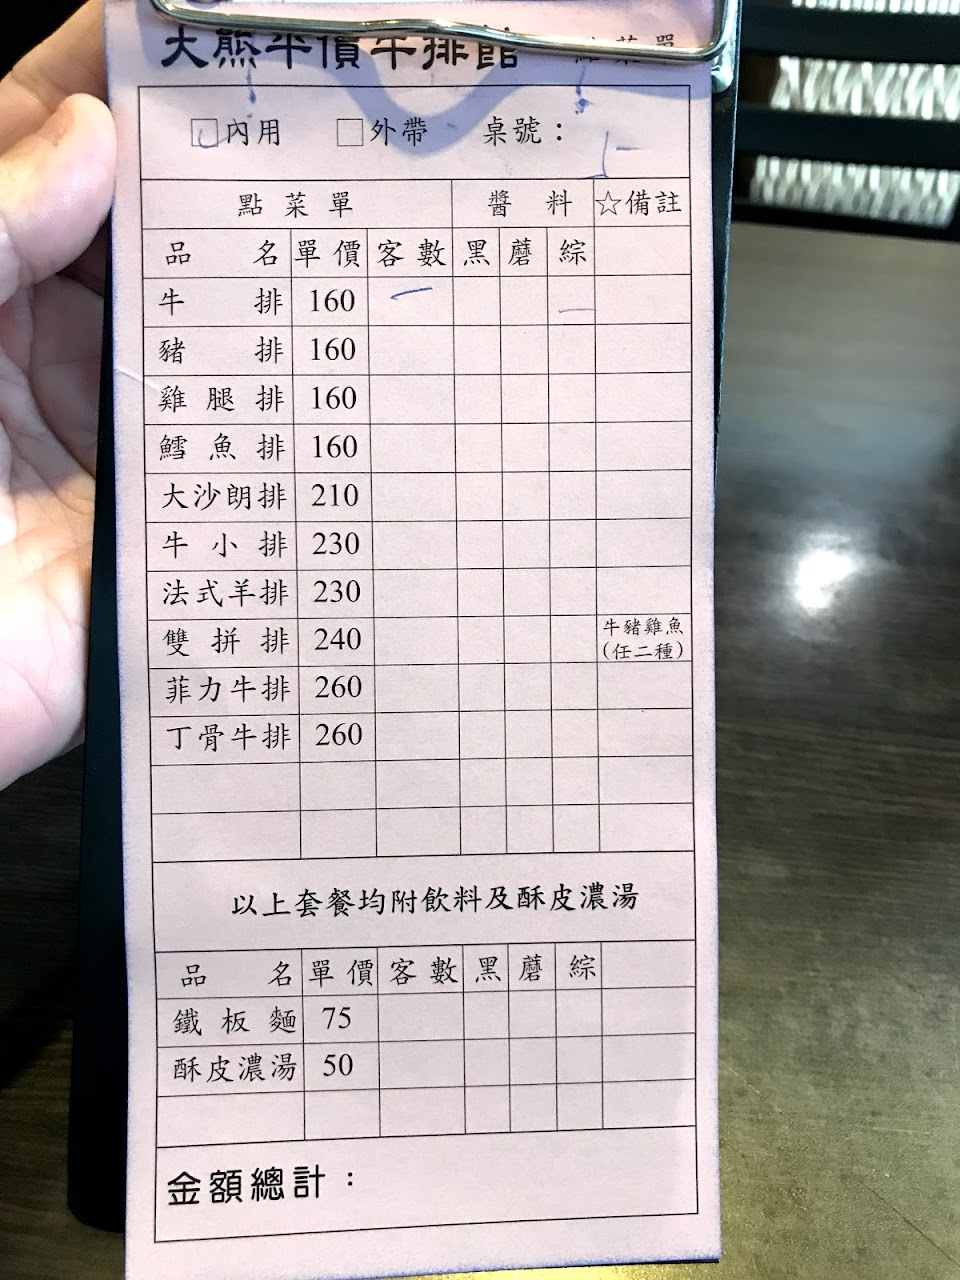 大熊平價牛排館 點菜單
□內用 □外帶 桌號： 5
點菜單 醬料 ☆備註
品名 單價 客數 黑 蘑 綜
牛排 160 一 一
豬排 160
雞腿排 160
鱈魚排 160
大沙朗排 210
牛小排 230
法式羊排 230
雙拼排 240 牛豬雞魚
(任二種)
菲力牛排 260
丁骨牛排 260
以上套餐均附飲料及酥皮濃湯
品名 單價 客數 黑 蘑 綜
鐵板麵 75
酥皮濃湯 50
金額總計：